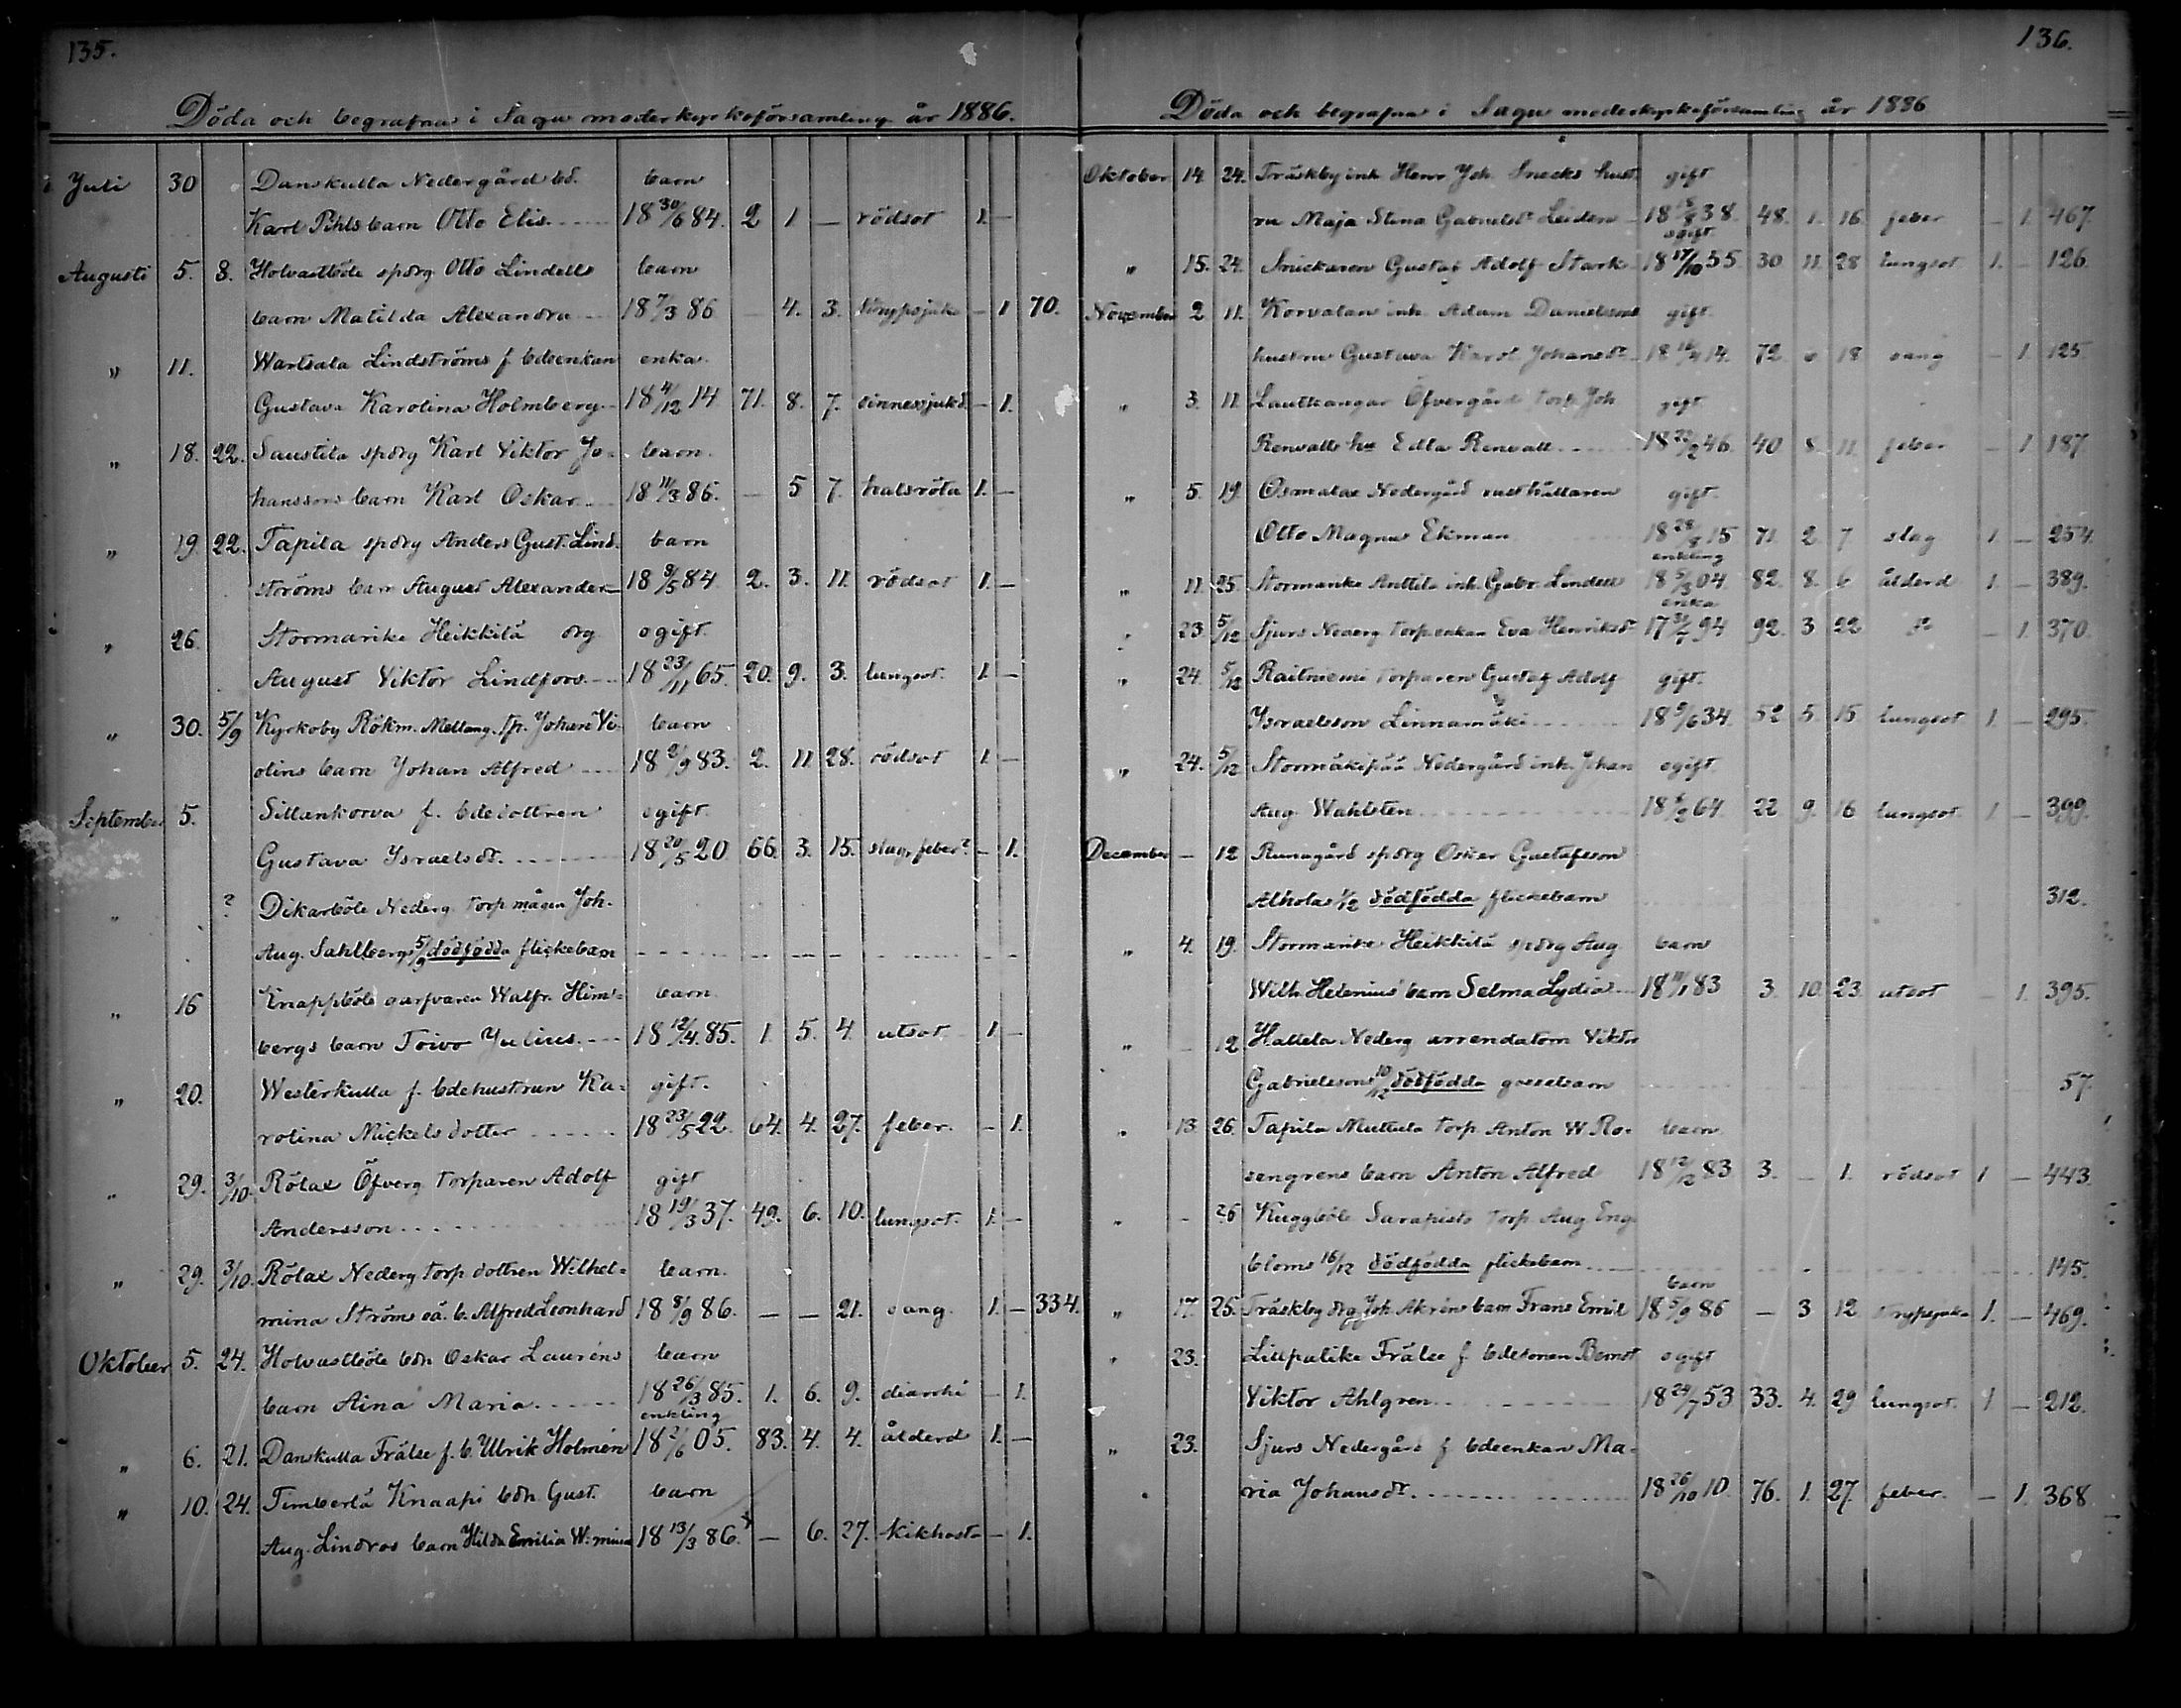 135.
Döda och begrafna i Sagu moderkyrkoförsamling år 1886.
Juli 30 Danskulla Nedergård bd. barn
Karl Pihls barn Otto Elis. 18 30/6 84. 2 1. — rödsot 1. —
Augusti 5. 8. Holvastböle spdrg Otto Lindells barn
barn Matilda Alexandra 18 7/3 86 — 4. 3. strypsjuka — 1 70.
" 11. Wartsala Lindströms f. bdeenkan enka.
Gustava Karolina Holmberg 18 4/12 14 71. 8. 7. sinnessjukd. — 1.
" 18. 22. Saustila spdrg Karl Viktor Jo- barn.
hanssons barn Karl Oskar 18 11/3 86. — 5 7. halsröta 1. —
" 19. 22. Tapila spdrg Anders Gust. Lind- barn
ströms barn August Alexander 18 8/5 84. 2. 3. 11. rödsot 1. —
" 26. Stormanike Heikkilä drg ogift.
August Viktor Lindfors 18 23/11 65. 20. 9. 3. lungsot. 1. —
" 30. 5/9 Kyrkoby Rökm. Mellang. tp. Johan Vi- barn
dins barn Johan Alfred 18 2/9 83. 2. 11 28. rödsot 1. —
September 5. Sillankorva f. bdedottren ogift.
Gustava Israelsdt. 18 20/5 20 66. 3. 15. slag, feber? — 1.
" ? Dikarböle Nederg. torp mågen Joh.
Aug. Sahlbergs 5/9 dödfödda flickebarn
" 16 Knappböle sarfvaren Walfr. Him- barn
bergs barn Toivo Julius. 18 12/4 85. 1. 5. 4. utsot 1. —
" 20. Westerkulla f. bdehustrun Ka- gift.
rolina Mickelsdotter 18 23/5 22. 64. 4. 27. feber. — 1.
" 29. 3/10. Rölax Öfverg torparen Adolf gift
Andersson 18 19/3 37. 49. 6. 10. lungsot. 1. —
" 29. 3/10. Rölax Nederg torp dottren Wilhel- barn.
mina Ströms oä. b. Alfred Leonhard 18 8/9 86. — — 21. sang. 1. — 334.
Oktober 5. 24. Holvastböle bdn Oskar Lauréns barn
barn Aina Maria 18 26/3 85. 1. 6. 9. diarrhé — 1.
enkling
" 6. 21. Danskulla Frälse f. b. Ulrik Holmén 18 2/6 05. 83. 4. 4. ålderd 1. —
" 10. 24. Timberlä Knaapi bdn. Gust. barn
Aug. Lindros barn Hilda Emilia W:mina 18 13/3 86. — 6. 27. kikhosta — 1.
136.
Döda och begrafna i Sagu moderkyrkoförsamling år 1886
Oktober 14. 24. Träskby inh. Henr Joh. Snecks hust- gift
ru Maja Stina Gabrielsdt 18 38. 48. 1. 16 feber — 1. 467.
ogift
" 15. 24. Snickaren Gustaf Adolf Stark 18 17/10 55 30 11. 28 lungsot 1. — 126
November 2 11. Korvalan inh. Adam Danielssons gift.
hustru Gustava Karol. Johansdt 18 14. 72. 18 sang — 1. 125
" 3. 11. Lautkangar Öfvergård torp. Joh gift
Renvalls hu Edla Renvall 18 22/2 46. 40 8. 11. feber — 1 187
" 5. 19. Osmalax Nedergård rusthållaren gift.
Otto Magnus Ekman 18 28/8 15 71. 2. 7 slag 1. — 254.
enkling
" 11. 25. Stormanike Anttila inh. Gabr. Lindell 18 5/3 04 82. 8. 6 ålderd 1. — 389.
enka
" 23. 5/12 Sjurs Nederg torpenkan Eva Henriksd 17 31/7 94 92. 3 22 — 1. 370.
" 24. 5/12 Raitniemi torparen Gustaf Adolf gift.
Israelsson Linnamäki 18 9/6 34. 52 5. 15 lungsot 1. — 295.
" 24. 5/12 Stormäkipää Nedergård inh. Johan ogift.
Aug. Wahlsten 18 8/2 64. 22 9. 16 lungsot. 1 — 399.
December — 12 Runagård spdrg Oskar Gustafsson
Alholas 1/12 dödfödda flickebarn 312.
" 4. 19. Stormanike Heikkilä spdrg Aug. barn
Wilh. Helenius' barn Selma Lydia 18 11/1 83 3. 10. 23. utsot — 1. 395.
" — 12 Hallela Nederg arrendatorn Viktor
Gabrielssons 10/12 dödfödda gossebarn 57.
" 13. 26. Tapila Muttula torp. Anton W. Ro- barn
sengrens barn Anton Alfred 18 12/12 83 3. — 1. rödsot 1 — 443.
" — 26 Kuggböle Sarapisto torp. Aug. Eng-
bloms 16/12 dödfödda flickebarn 145.
barn
" 17. 25. Träskby drg Joh. Akréns barn Frans Emil 18 5/9 86 — 3 12 strypsjuka 1. — 469.
" 23. Lillpalike Frälse f. bdesonen Bernt ogift
Viktor Ahlgren 18 24/7 53 33. 4. 29 lungsot. 1 — 212.
" 23. Sjurs Nedergård f. bdeenkan Ma-
ria Johansdt. 18 26/10 10. 76. 1. 27. feber. — 1. 368